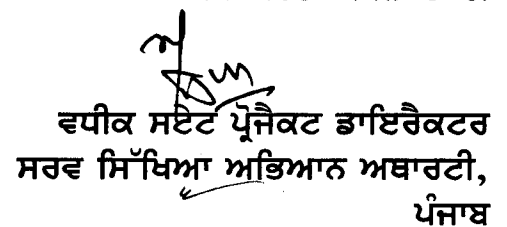 ਵਧੀਕ ਸਇੇਟ ਪ੍ਰੋਜੈਕਟ ਡਾਇਰੈਕਟਰ
ਸਰਵ ਸਿੱਖਿਆ ਅਭਿਆਨ ਅਥਾਰਟੀ,
ਪੰਜਾਬ